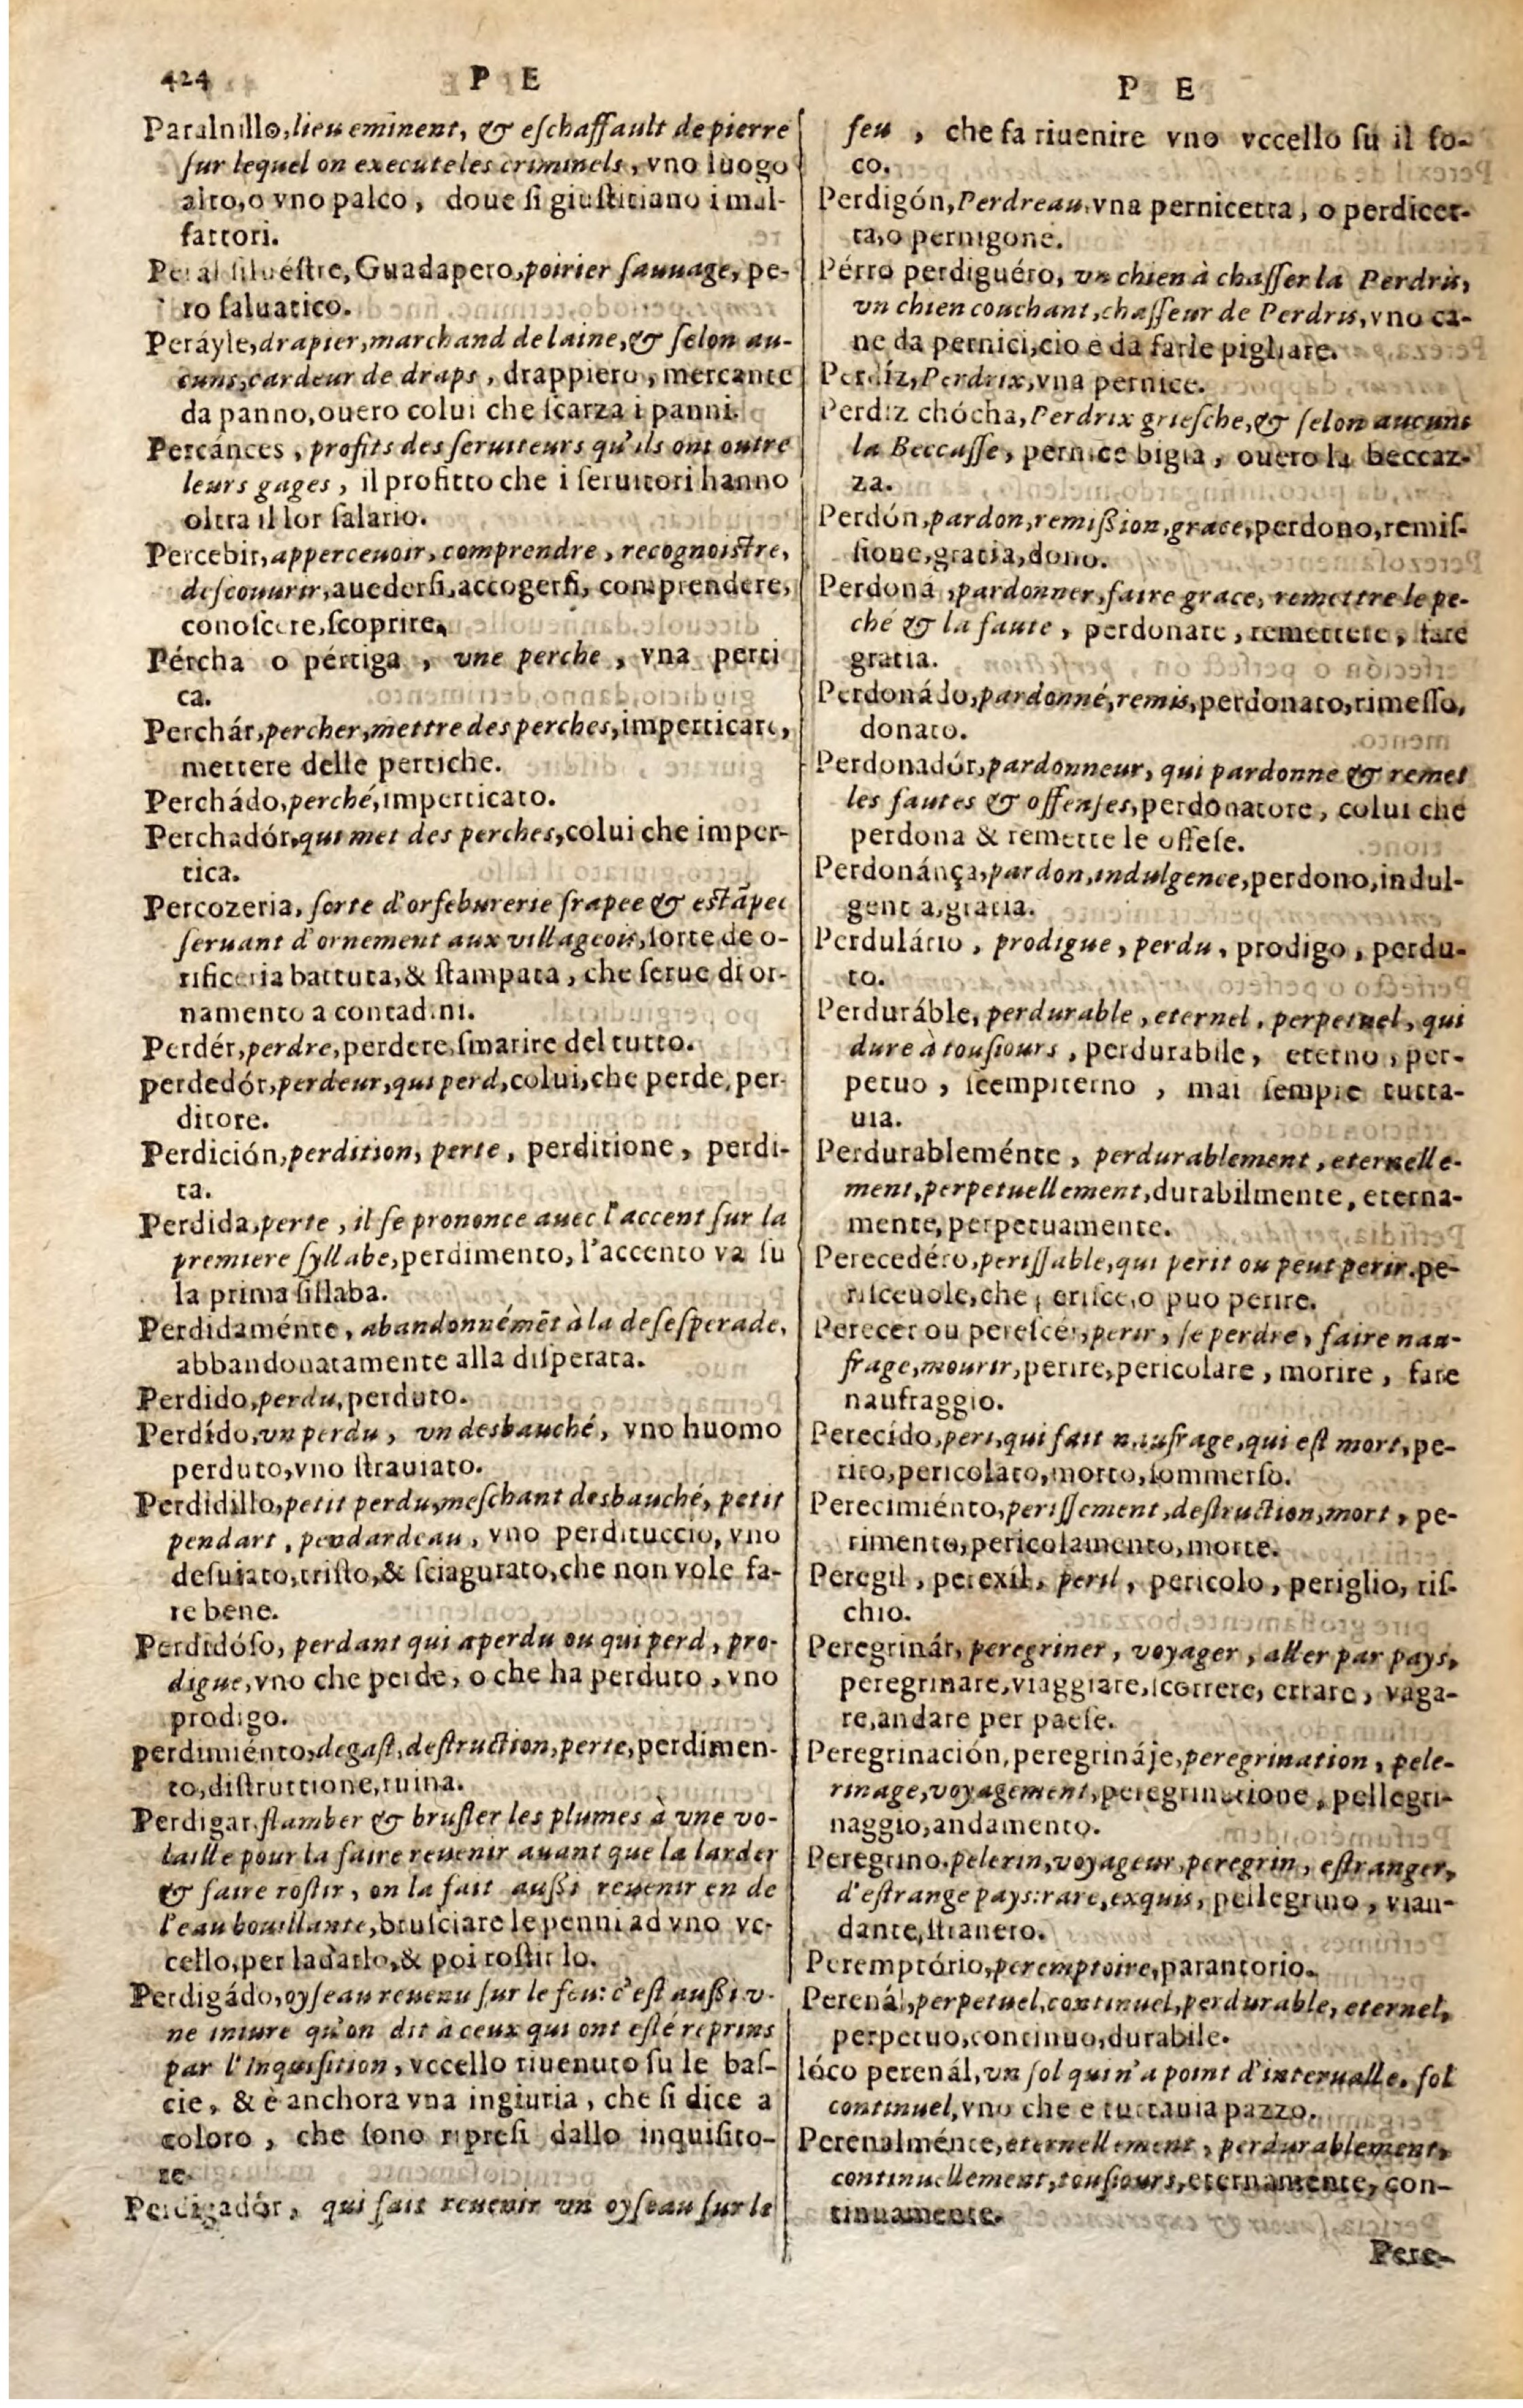 424 P E
Paralnillo, lieu eminent, & eſchaffault de pierre
ſur lequel on execute les criminels, vno luogo
alto, o vno palco, doue ſi giuſtitiano i mal-
fattori.
Peral ſilueſtre, Guadapero, poirier ſauuage, pe-
ro ſaluatico.
Peráyle, drapier, marchand de laine, & ſelon au-
cuns, cardeur de draps, drappiero, mercante
da panno, ouero colui che ſcarza i panni.
Percánces, profits des ſeruiteurs qu'ils ont outre
leurs gages, il profitto che i ſeruitori hanno
oltra il lor ſalario.
Percebir, apperceuoir, comprendre, recognoiſtre,
deſcouurir, auederſi, accogerſi, comprendere,
conoſcere, ſcoprire.
Pércha o pértiga, vne perche, vna perti
ca.
Perchár, percher, mettre des perches, imperticare,
mettere delle pertiche.
Perchádo, perché, imperticato.
Perchadór, qui met des perches, colui che imper-
tica.
Percozeria, ſorte d'orfeburerie frapee & eſtãpee
ſeruant d'ornement aux villageois, ſorte de o-
rificeria battuta, & ſtampata, che ſerue di or-
namento a contadini.
Perdér, perdre, perdere, ſmarire del tutto.
perdedór, perdeur, qui perd, colui, che perde, per-
ditore.
Perdición, perdition, perte, perditione, perdi-
ta.
Perdida, perte, il ſe prononce auec l'accent ſur la
premiere ſyllabe, perdimento, l'accento va ſu
la prima ſillaba.
Perdidaménte, abandonnémẽt à la deſeſperade,
abbandonatamente alla diſperata.
Perdido, perdu, perduto.
Perdído, vn perdu, vn desbauché, vno huomo
perduto, vno ſtrauiato.
Perdidillo, petit perdu, meſchant desbauché, petit
pendart, pendardeau, vno perdituccio, vno
deſuiato, triſto, & ſciagurato, che non vole fa-
re bene.
Perdidóſo, perdant qui a perdu ou qui perd, pro-
digue, vno che perde, o che ha perduto, vno
prodigo.
perdimiénto, degaſt, deſtruction, perte, perdimen-
to, diſtruttione, ruina.
Perdigar, flamber & bruſler les plumes à vne vo-
laille pour la faire reuenir auant que la larder
& faire roſtir, on la fait auſſi reuenir en de
l'eau bouillante, bruſciare le penni ad vno vc-
cello, per ladarlo, & poi roſtir lo.
Perdigádo, oyſeau reuenu ſur le feu: c'eſt auſſi v-
ne iniure qu'on dit à ceux qui ont eſté reprins
par l'Inquiſition, vccello riuenuto ſu le baſ-
cie, & è anchora vna ingiuria, che ſi dice a
coloro, che ſono ripreſi dallo inquiſito-
re.
Perdigadór, qui fait reuenir vn oyſeau ſur le
P E
feu, che fa riuenire vno vccello ſu il fo-
co.
Perdigón, Perdreau, vna pernicetta, o perdicet-
ta, o pernigone.
Pérro perdiguéro, vn chien à chaſſer la Perdris,
vn chien couchant, chaſſeur de Perdris, vno ca-
ne da pernici, cio e da farle pigliare.
Perdíz, Perdrix, vna pernice.
Perdiz chócha, Perdrix grieſche, & ſelon aucuns
la Beccaſſe, pernice bigia, ouero la beccaz-
za.
Perdón, pardon, remiſſion, grace, perdono, remiſ-
ſione, gratia, dono.
Perdona, pardonner, faire grace, remettre le pe-
ché & la faute, perdonare, remettere, fare
gratia.
Perdonádo, pardonné, remis, perdonato, rimeſſo,
donato.
Perdonadór, pardonneur, qui pardonne & remet
les fautes & offenſes, perdonatore, colui che
perdona & remette le offeſe.
Perdonánça, pardon, indulgence, perdono, indul-
gent a, gratia.
Perdulário, prodigue, perdu, prodigo, perdu-
to.
Perduráble, perdurable, eternel, perpetuel, qui
dure à touſiours, perdurabile, eterno, per-
petuo, ſcempiterno, mai ſempre tutta-
uia.
Perdurableménte, perdurablement, eternelle-
ment, perpetuellement, durabilmente, eterna-
mente, perpetuamente.
Perecedéro, periſſable, qui perit ou peut perir, pe-
riſceuole, che periſce, o puo perire.
Perecer ou pereſcér, perir, ſe perdre, faire nau-
frage, mourir, perire, pericolare, morire, fare
naufraggio.
Perecído, peri, qui fait naufrage, qui eſt mort, pe-
rito, pericolato, morto, ſommerſo.
Perecimiénto, periſſement, deſtruction, mort, pe-
rimento, pericolamento, morte.
Peregil, perexil, peril, pericolo, periglio, riſ-
chio.
Peregrinár, peregriner, voyager, aller par pays,
peregrinare, viaggiare, ſcorrere, errare, vaga-
re, andare per paeſe.
Peregrinación, peregrináje, peregrination, pele-
rinage, voyagement, peregrinatione, pellegri-
naggio, andamento.
Peregrino. pelerin, voyageur, peregrin, eſtranger,
d'eſtrange pays: rare, exquis, pellegrino, vian-
dante, ſtraniero.
Peremptório, peremptoire, parantorio.
Perenál, perpetuel, continuel, perdurable, eternel,
perpetuo, continuo, durabile.
lóco perenál, vn fol qui n'a point d'interualle. fol
continuel, vno che e tuttauia pazzo.
Perenalménte, eternellement, perdurablement,
continuellement, touſiours, eternamente, con-
tinuamente.
Pere-